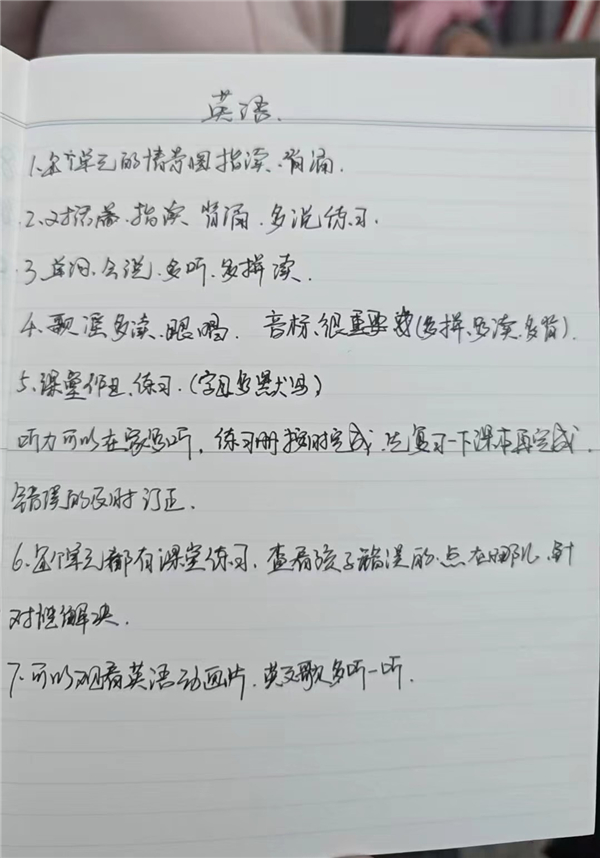 英语.
1.每个单元的情景图指读、背诵.
2.对话需.指读 背诵.多说练习.
3.单词.会说.多听.多拼读.
4.歌谣多读.跟唱. 音标.很重要(多拼.多读.多背).
5.课堂作业、练习.(字母多默写)
听力可以在家多听,练习册按时完成.先复习一下课本再完成.
错误的及时订正.
6.每个单元都有课堂练习.查看孩子错误的点在哪儿.针
对性解决.
7.可以观看英语动画片.英文歌多听一听.